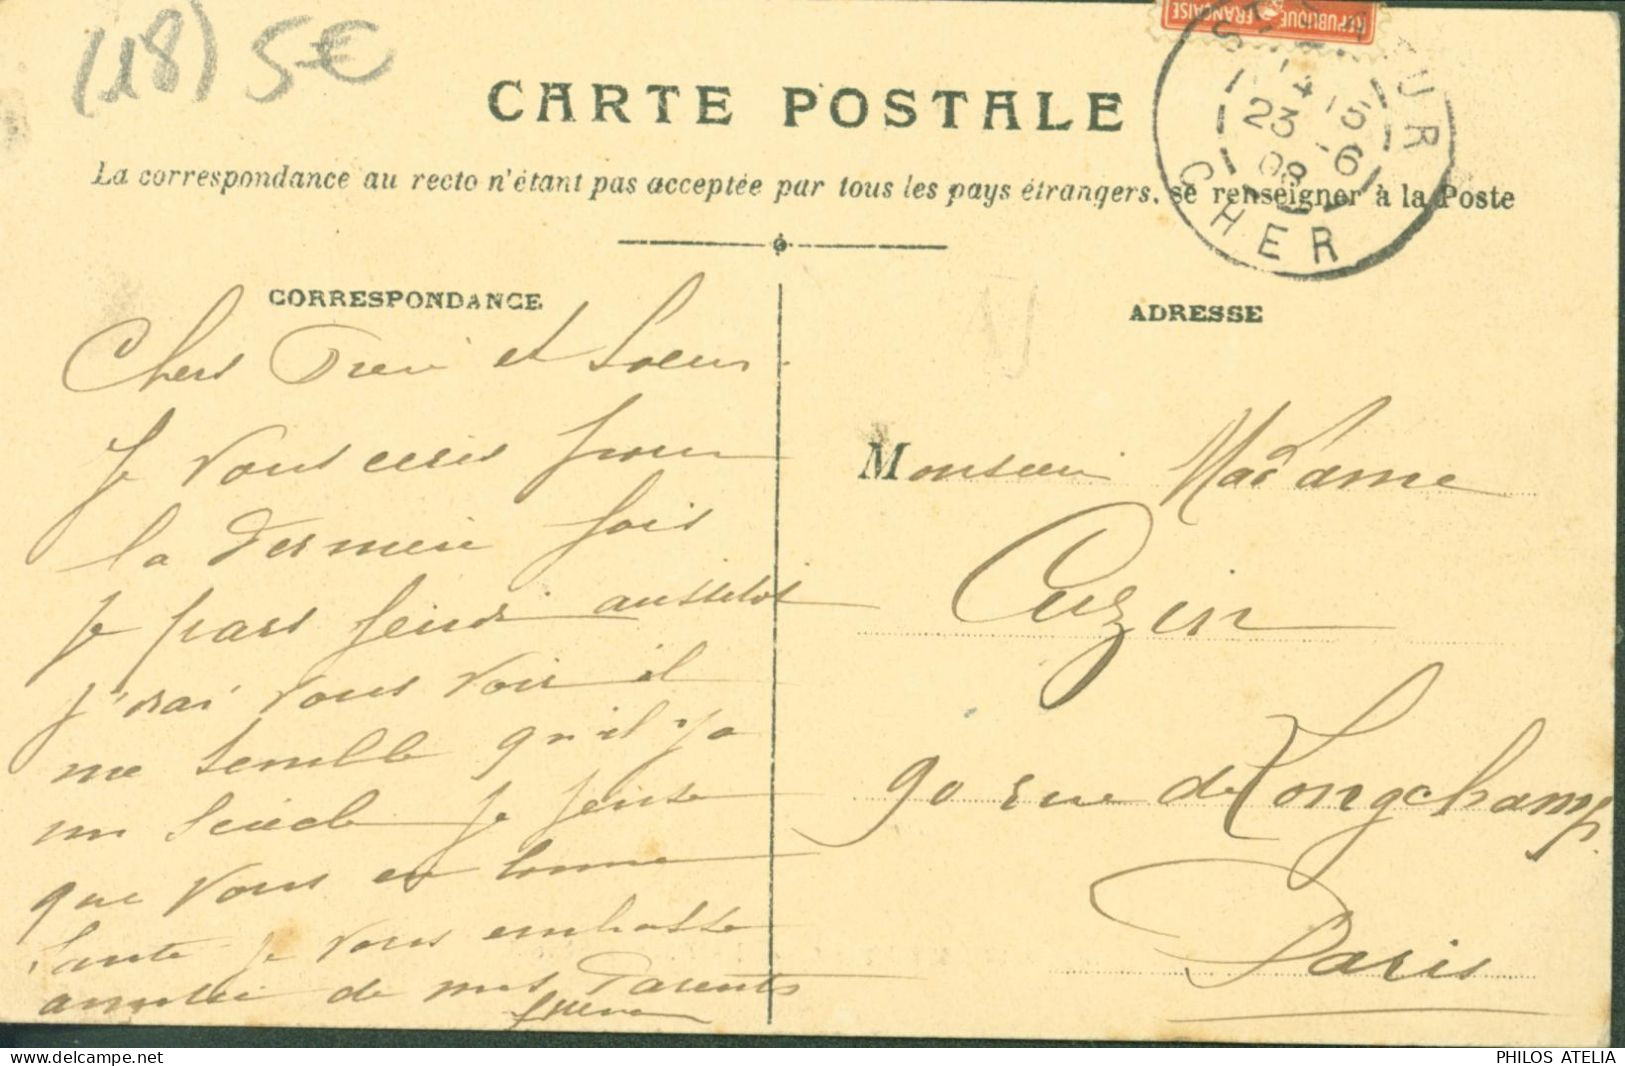 (18) 5€
RÉPUBLIQUE FRANÇAISE
CARTE POSTALE
14 15
23 -6
08
CHER
La correspondance au recto n'étant pas acceptée par tous les pays étrangers, se renseigner à la Poste
CORRESPONDANCE
ADRESSE
Chers Frere et Soeur
Je vous ecris pour
la derniere fois
je pars jeudi aussitot
j'irai vous voir il
me semble qu'il y a
un siecle je pense
que vous en bonne
Sante je vous embrasse
de mes Parents
Monsieur Madame
Cuzin
90 rue de Longchamp
Paris
PHILOS ATELIA